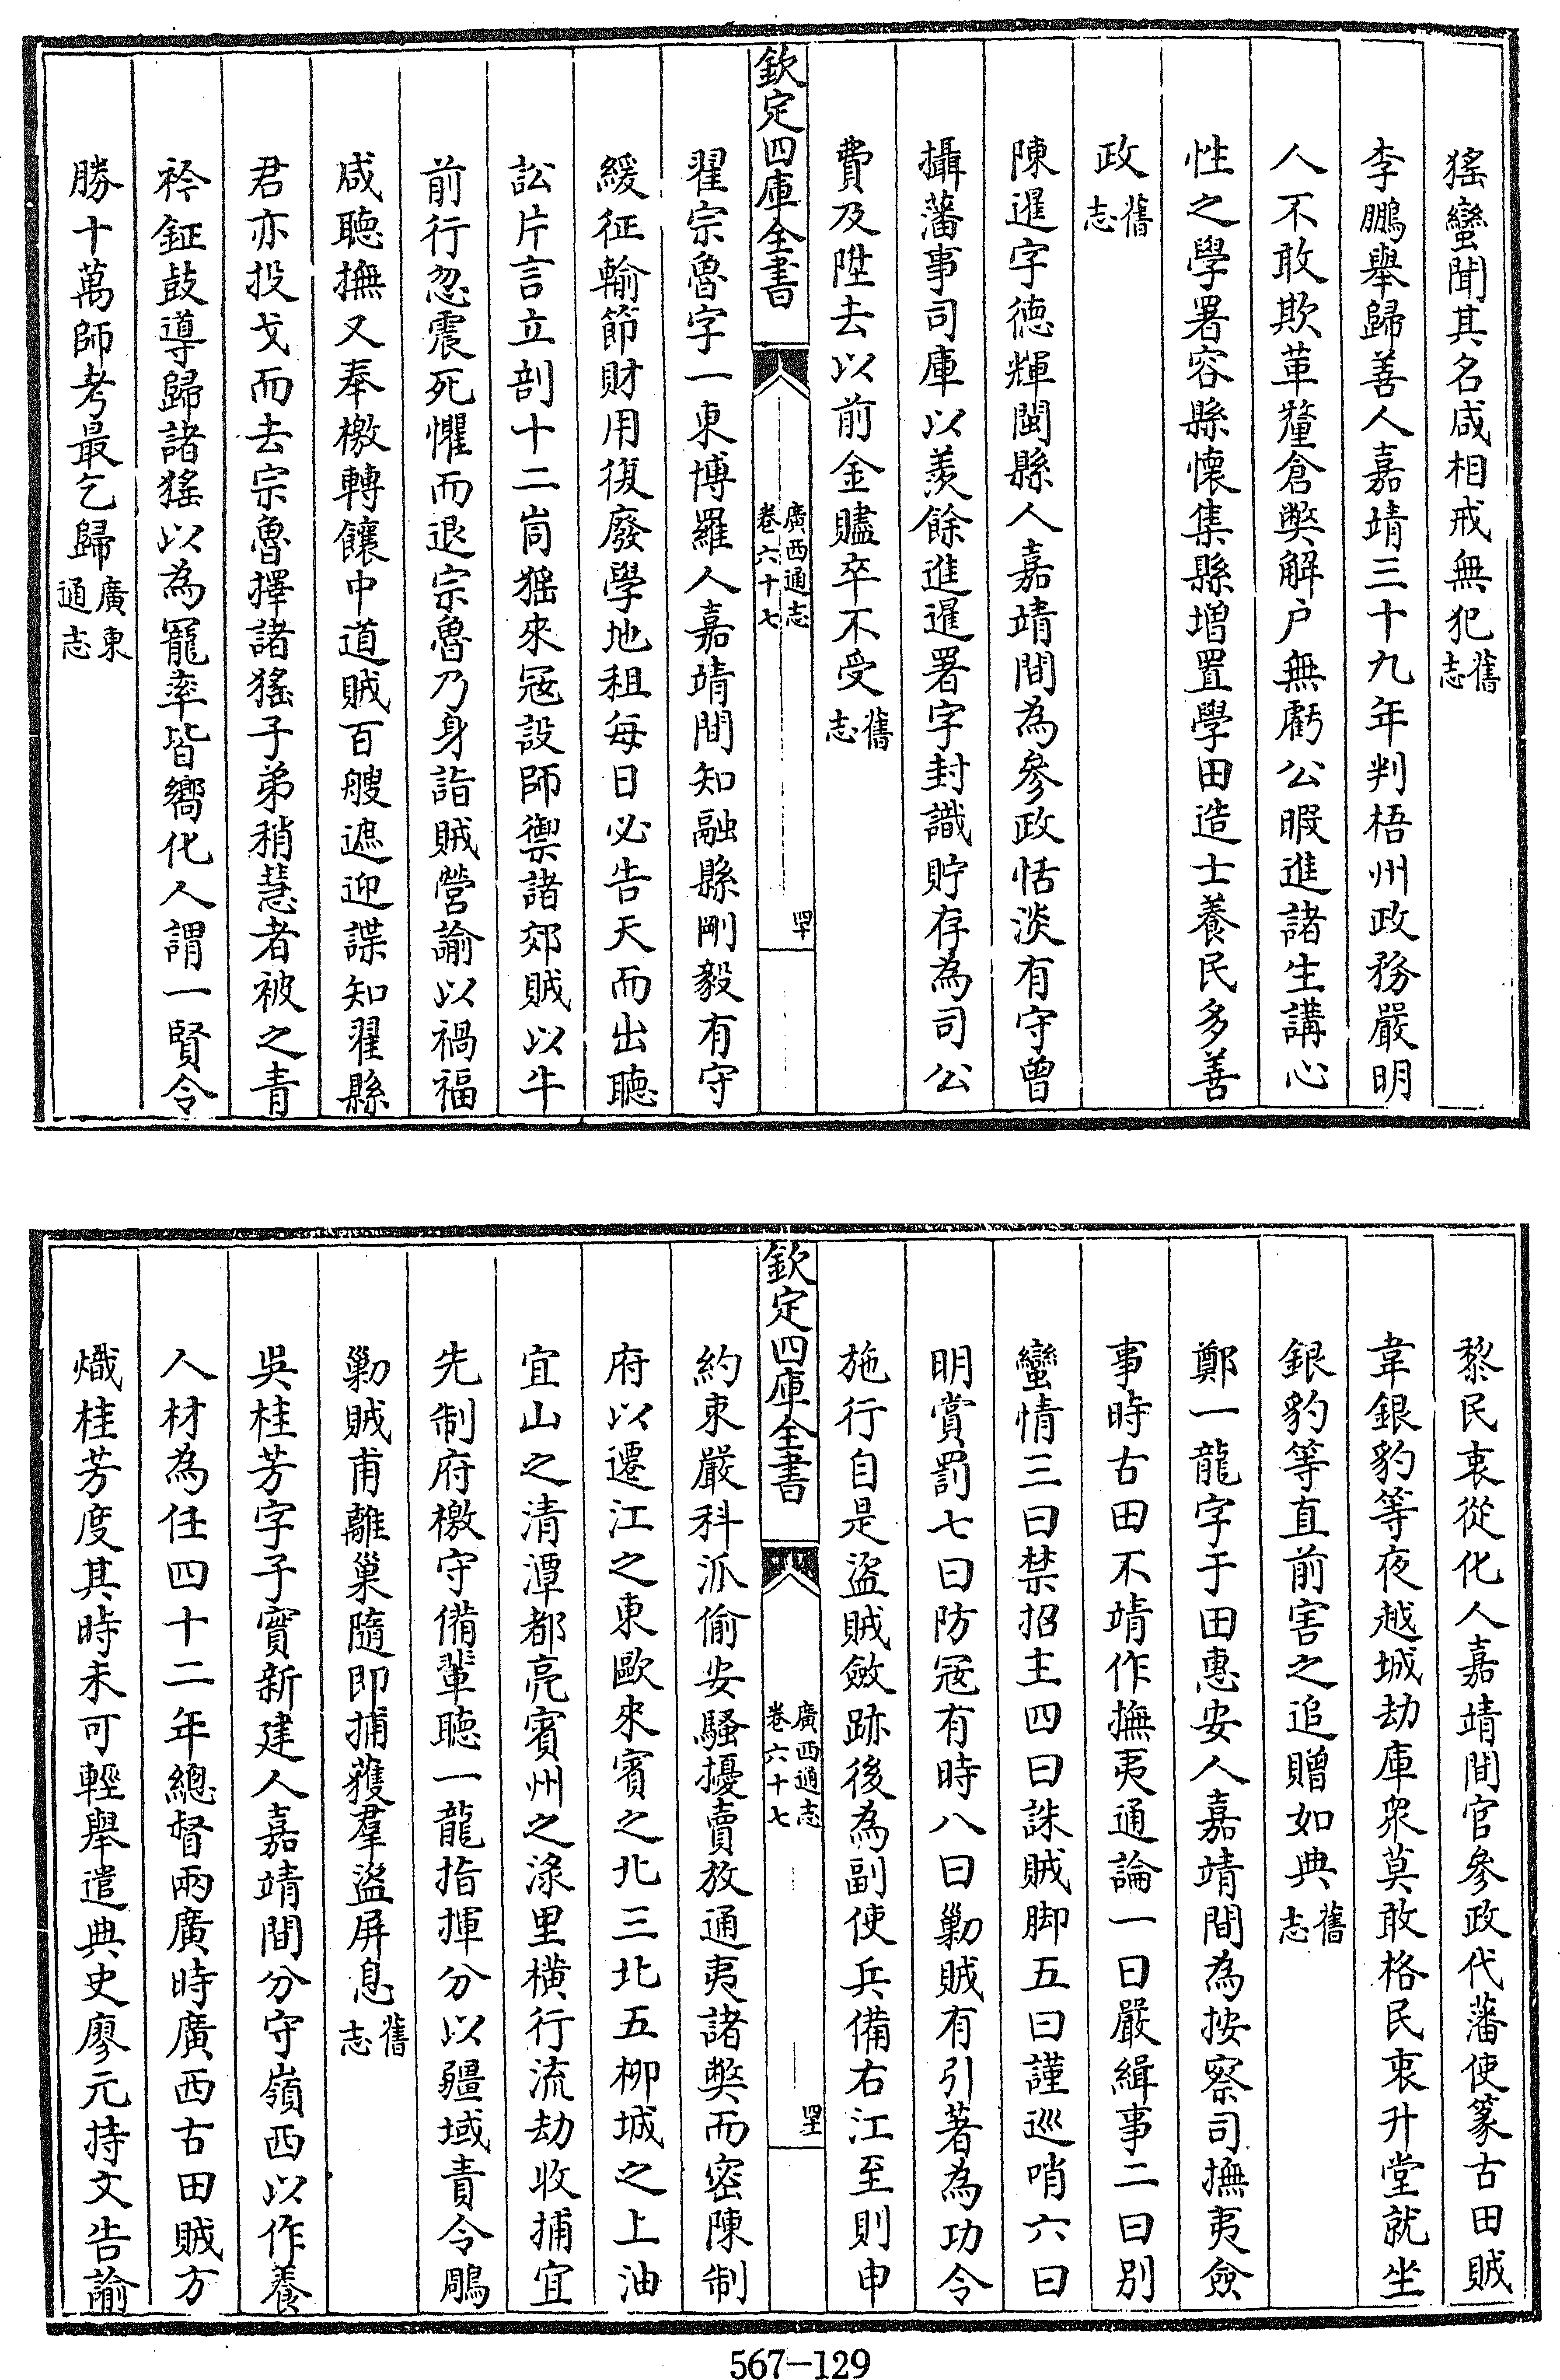 猺蠻聞其名咸相戒無犯舊志
李鵬舉歸善人嘉靖三十九年判梧州政務嚴明
人不敢欺革釐倉弊解户無虧公暇進諸生講心
性之學署容縣懷集縣增置學田造士養民多善
政舊志
陳暹字徳輝閩縣人嘉靖間為參政恬淡有守曾
攝藩事司庫以羨餘進暹署字封識貯存為司公
費及陞去以前金贐卒不受舊志
欽定四庫全書
廣西通志
卷六十七
四十
翟宗魯字一東博羅人嘉靖間知融縣剛毅有守
緩征輸節財用復廢學地租每日必告天而出聽
訟片言立剖十二峝猺來冦設師禦諸郊賊以牛
前行忽震死懼而退宗魯乃身詣賊營諭以禍福
咸聽撫又奉檄轉饟中道賊百艘遮迎諜知翟縣
君亦投戈而去宗魯擇諸猺子弟稍慧者被之青
衿鉦鼓導歸諸猺以為寵率皆嚮化人謂一賢令
勝十萬師考最乞歸廣東通志
黎民衷從化人嘉靖間官參政代藩使篆古田賊
韋銀豹等夜越城劫庫衆莫敢格民衷升堂就坐
銀豹等直前害之追贈如典舊志
鄭一龍字于田惠安人嘉靖間為按察司撫夷僉
事時古田不靖作撫夷通論一曰嚴緝事二曰别
蠻情三曰禁招主四曰誅賊脚五曰謹巡哨六曰
明賞罰七曰防冦有時八曰勦賊有引著為功令
施行自是盜賊斂跡後為副使兵備右江至則申
欽定四庫全書
廣西通志
卷六十七
四十一
約束嚴科派偷安騷擾賣放通夷諸弊而密陳制
府以遷江之東歐來賓之北三北五柳城之上油
宜山之清潭都亮賓州之淥里横行流劫收捕宜
先制府檄守備輩聽一龍指揮分以疆域責令鵰
勦賊甫離巢隨即捕獲羣盜屏息舊志
吳桂芳字子實新建人嘉靖間分守嶺西以作養
人材為任四十二年總督兩廣時廣西古田賊方
熾桂芳度其時未可輕舉遣典史廖元持文告諭
567—129